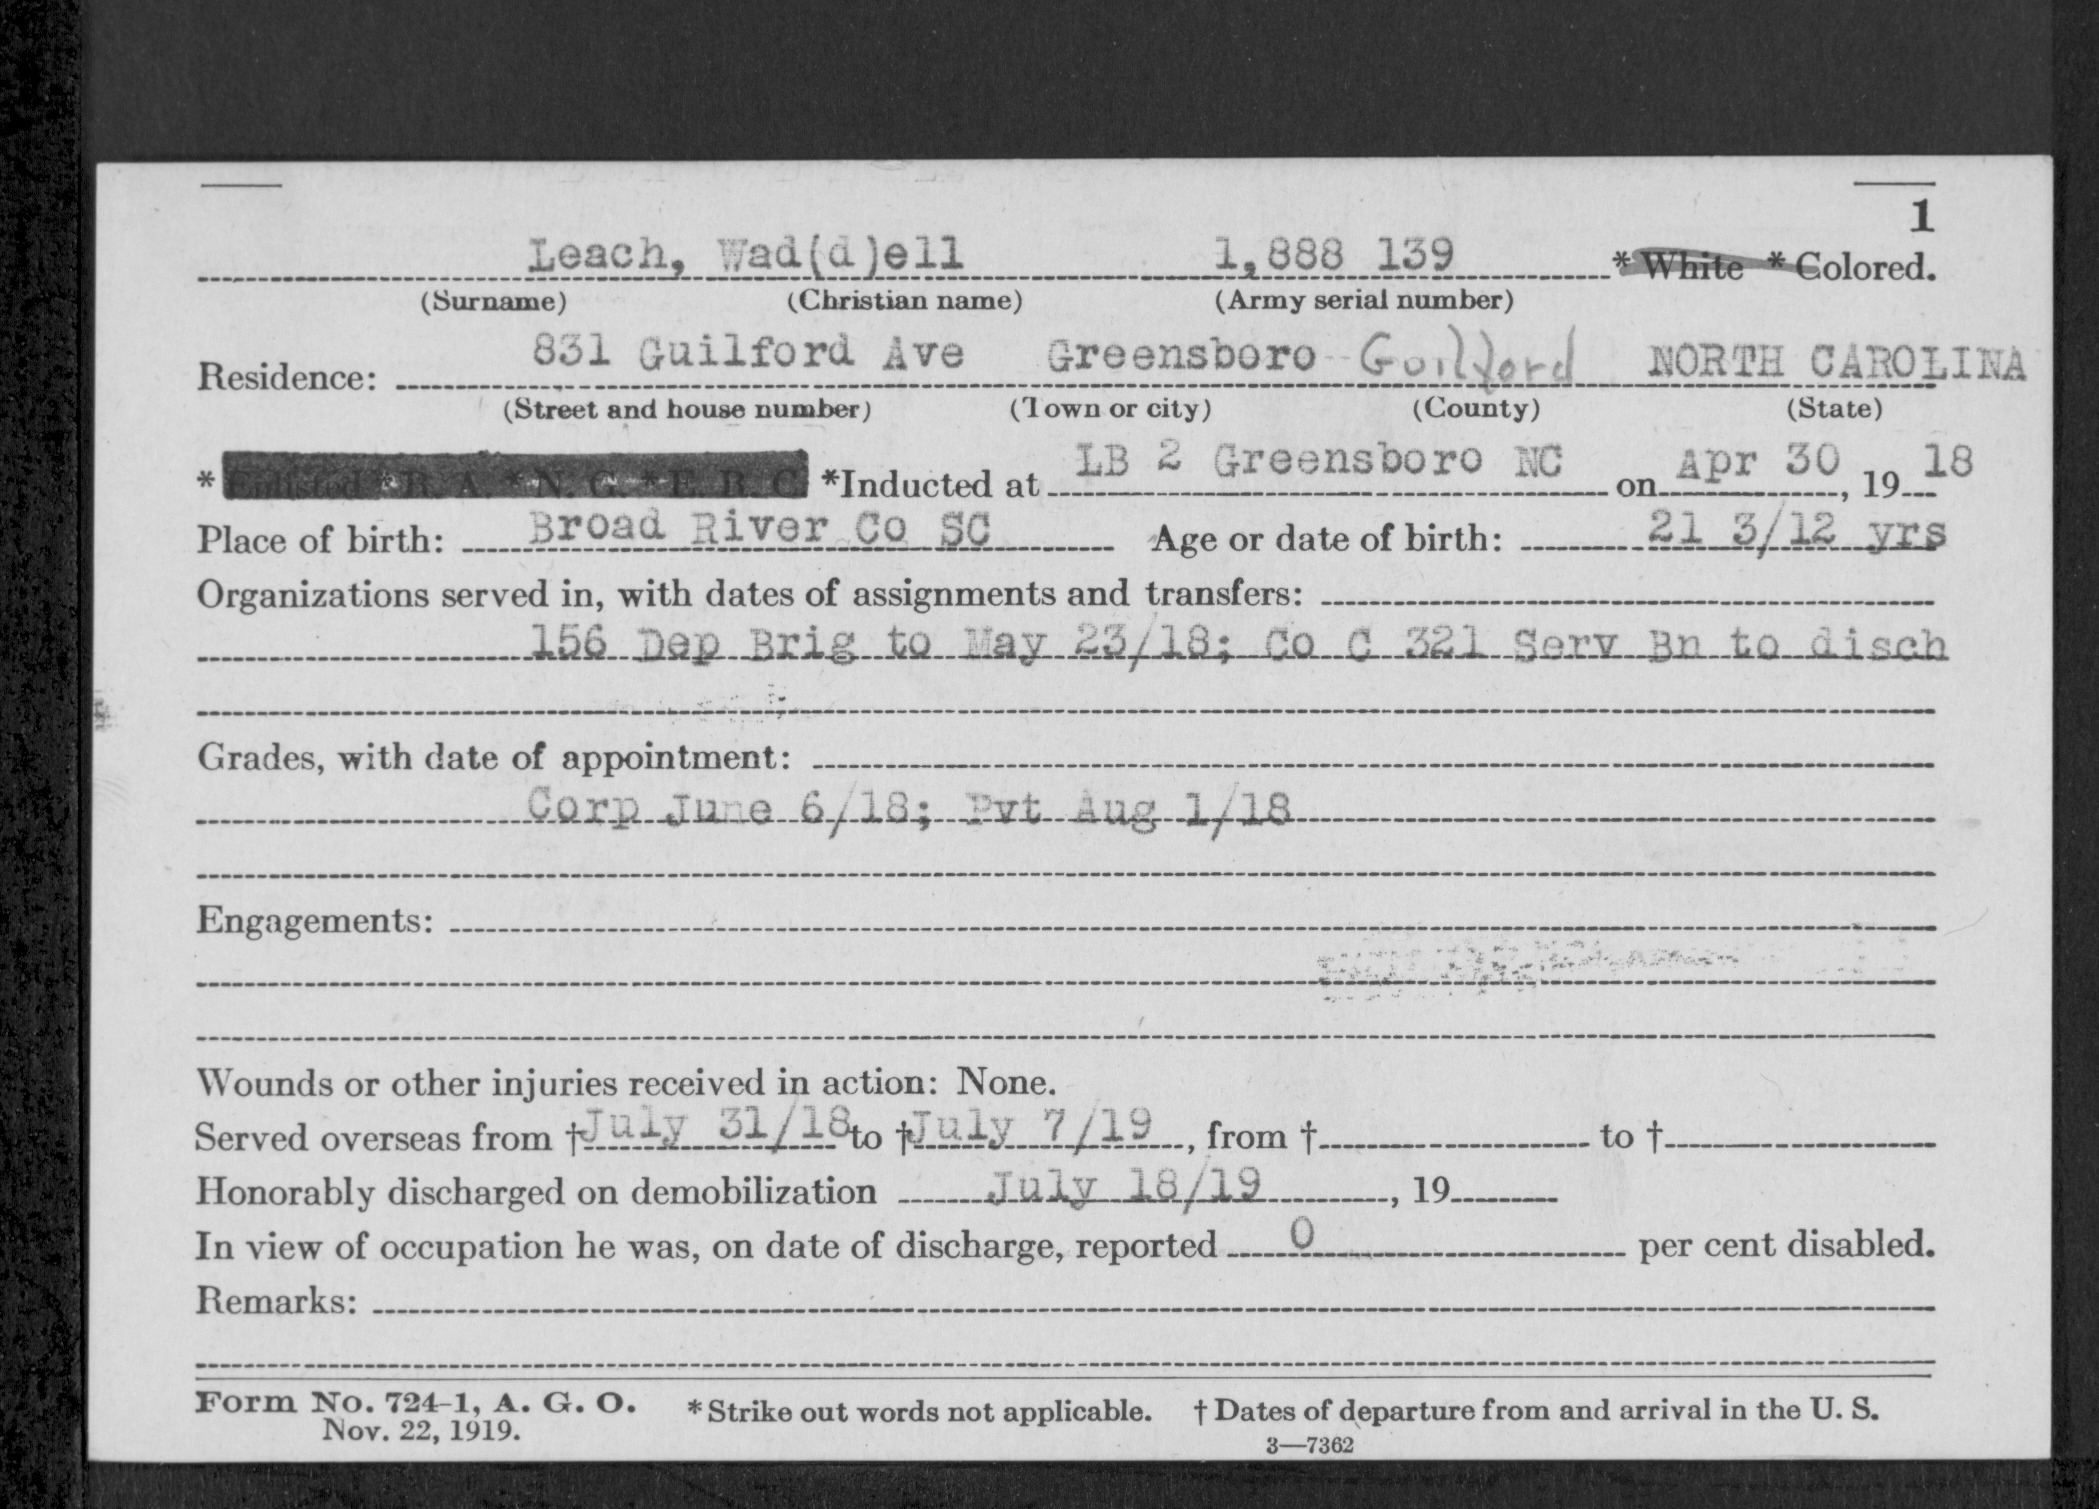 1
Leach, Wad(d)ell 1,888 139 *White *Colored.
(Surname) (Christian name) (Army serial number)
831 Guilford Ave Greensboro Guilford NORTH CAROLINA
Residence:
(Street and house number) (Town or city) (County) (State)
*Enlisted *R. A. *N. G. *E. R. C. *Inducted at LB 2 Greensboro NC on Apr 30, 19 18
Place of birth: Broad River Co SC Age or date of birth: 21 3/12 yrs
Organizations served in, with dates of assignments and transfers:
156 Dep Brig to May 23/18; Co C 321 Serv Bn to disch
Grades, with date of appointment:
Corp June 6/18; Pvt Aug 1/18
Engagements:
Wounds or other injuries received in action: None.
Served overseas from †July 31/18 to †July 7/19, from † to †
Honorably discharged on demobilization July 18/19, 19
In view of occupation he was, on date of discharge, reported 0 per cent disabled.
Remarks:
Form No. 724-1, A. G. O. *Strike out words not applicable. †Dates of departure from and arrival in the U. S.
Nov. 22, 1919.
3—7362